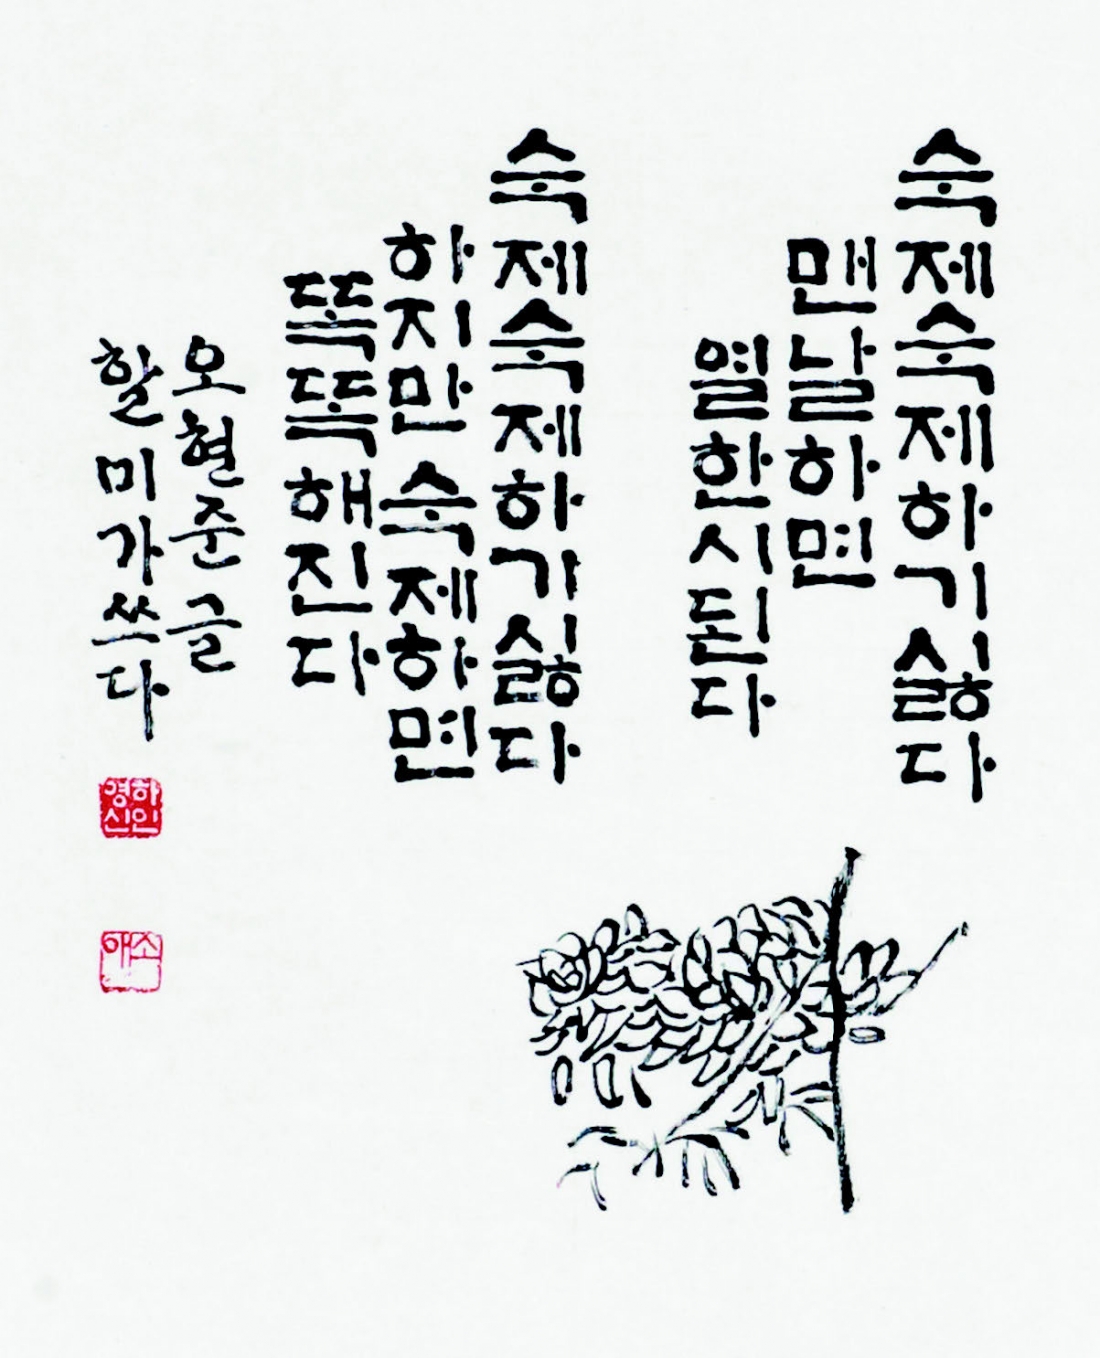 숙제숙제하기싫다
맨날하면
열한시된다
숙제숙제하가싫다
하지만숙제하면
똑똑해진다
오현준글
할미가쓰다
하인
영신
소
애